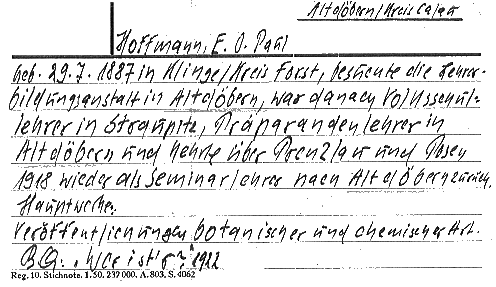 Altdöbern/Kreis Calau
Hoffmann, E. O. Paul
geb. 29.7.1887 in Klinge/Kreis Forst, besuchte die Lehrer-
bildungsanstalt in Altdöbern, war danach Volksschul-
lehrer in Straupitz, Präparandenlehrer in
Altdöbern und kehrte über Prenzlau und Posen
1918 wieder als Seminarlehrer nach Altdöbern zurück,
Hauptwerke:
Veröffentlichungen botanischer und chemischer Art.
BQ: "Wer ist's?" 1922
Reg. 10. Stichnote. 1. 50. 237 000. A. 803, S. 4062